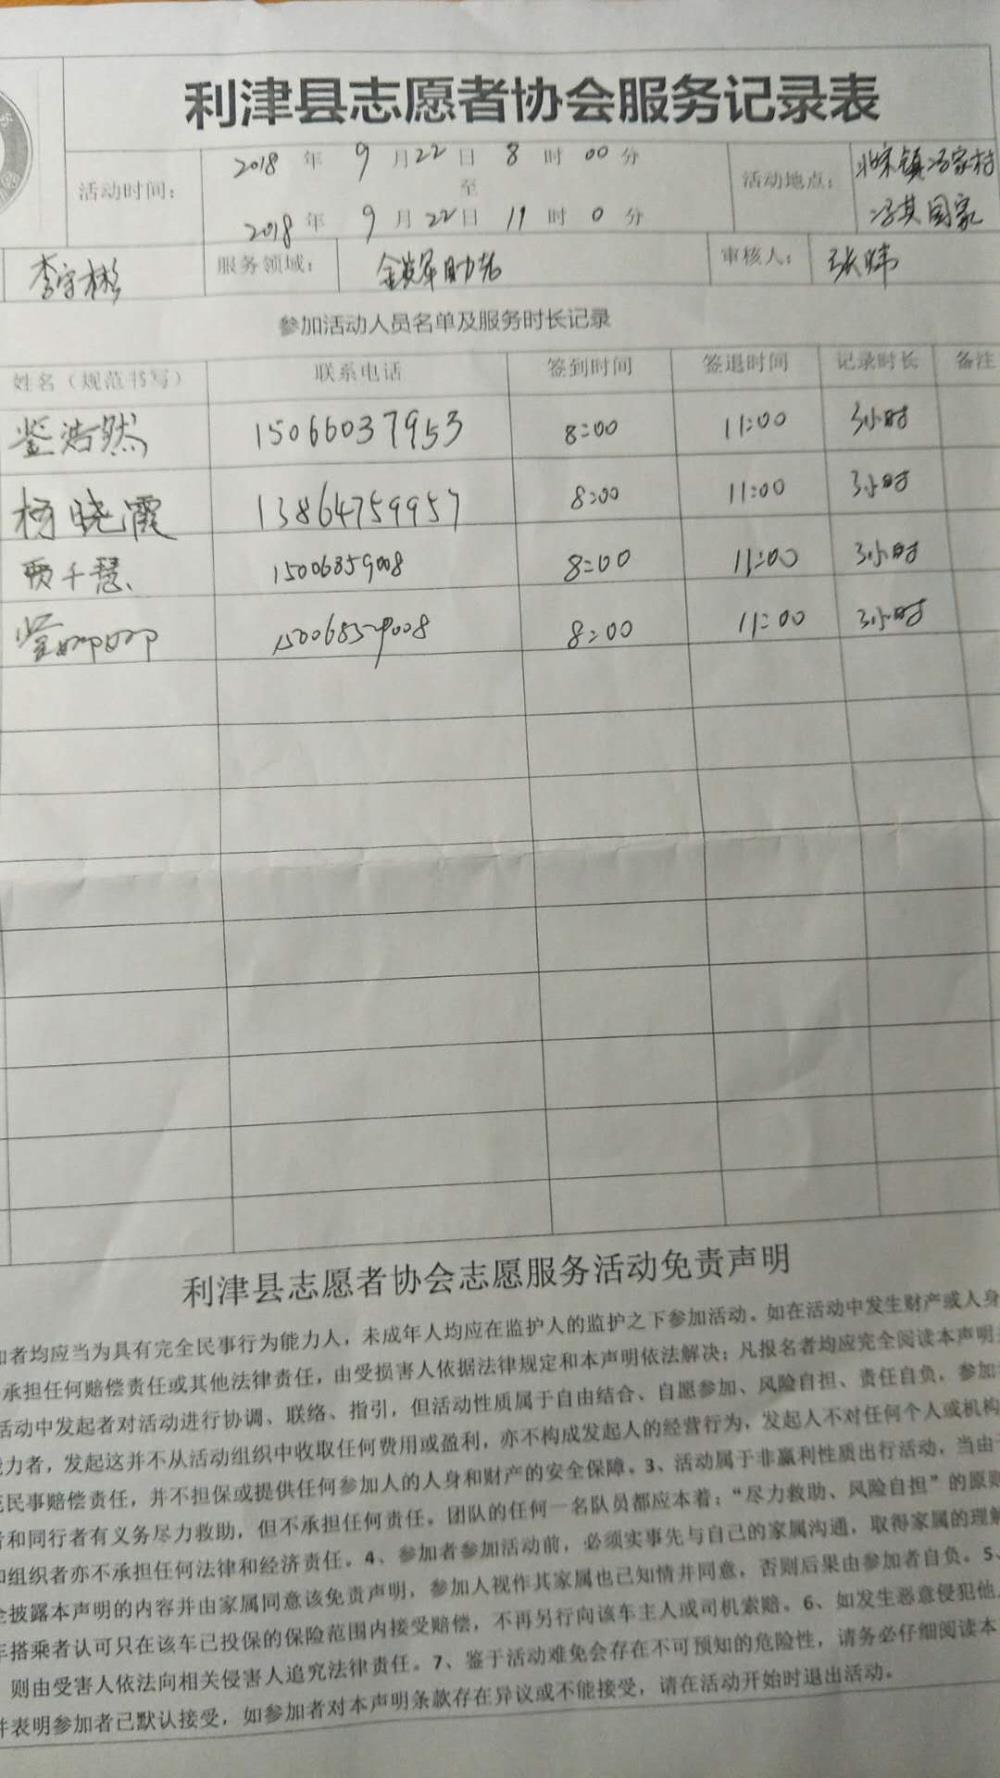 利津县志愿者协会服务记录表
活动时间：
2018 年 9 月 22 日 8 时 00 分
至
2018 年 9 月 22 日 11 时 0 分
活动地点：
北宋镇冯家村
冯其国家
李守彬
服务领域：
审核人：
张炜
参加活动人员名单及服务时长记录
姓名（规范书写） 联系电话 签到时间 签退时间 记录时长 备注
鉴浩然 15066037953 8:00 11:00 3小时
杨晓霞 13864759957 8:00 11:00 3小时
贾千慧 15006859008 8:00 11:00 3小时
15006859008 8:00 11:00 3小时
利津县志愿者协会志愿服务活动免责声明
者均应当为具有完全民事行为能力人，未成年人均应在监护人的监护之下参加活动。如在活动中发生财产或人身
承担任何赔偿责任或其他法律责任，由受损害人依据法律规定和本声明依法解决；凡报名者均应完全阅读本声明
活动中发起者对活动进行协调、联络、指引，但活动性质属于自由结合、自愿参加、风险自担、责任自负，参加
力者，发起这并不从活动组织中收取任何费用或盈利，亦不构成发起人的经营行为，发起人不对任何个人或机构
民事赔偿责任，并不担保或提供任何参加人的人身和财产的安全保障。3、活动属于非赢利性质出行活动，当由
和同行者有义务尽力救助，但不承担任何责任。团队的任何一名队员都应本着：“尽力救助、风险自担”的原则
组织者亦不承担任何法律和经济责任。4、参加者参加活动前，必须实事先与自己的家属沟通，取得家属的理解
披露本声明的内容并由家属同意该免责声明，参加人视作其家属也已知情并同意，否则后果由参加者自负。5、
搭乘者认可只在该车已投保的保险范围内接受赔偿，不再另行向该车主人或司机索赔。6、如发生恶意侵犯他
则由受害人依法向相关侵害人追究法律责任。7、鉴于活动难免会存在不可预知的危险性，请务必仔细阅读本
并表明参加者已默认接受，如参加者对本声明条款存在异议或不能接受，请在活动开始时退出活动。